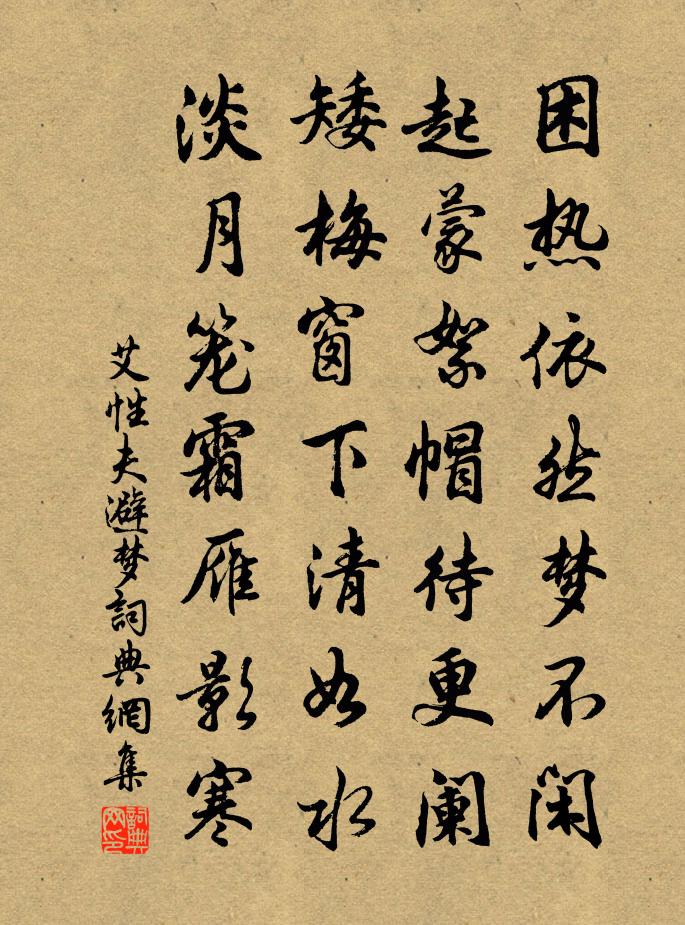 困热依然梦不闲
起蒙絮帽待更阑
矮梅窗下清如水
淡月笼霜雁影寒
艾性夫避梦詞典網集
詞典网印